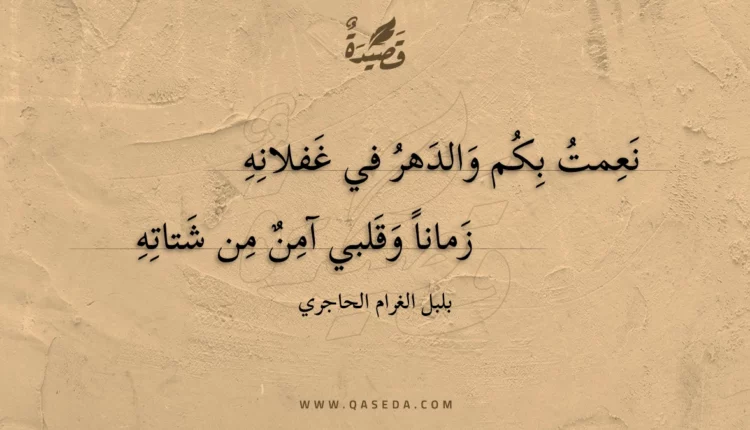 قَصِيدَةٌ
نَعِمتُ بِكُم وَالدَهرُ في غَفلانِهِ
زَماناً وَقَلبي آمِنٌ مِن شَتاتِهِ
بلبل الغرام الحاجري
WWW.QASEDA.COM